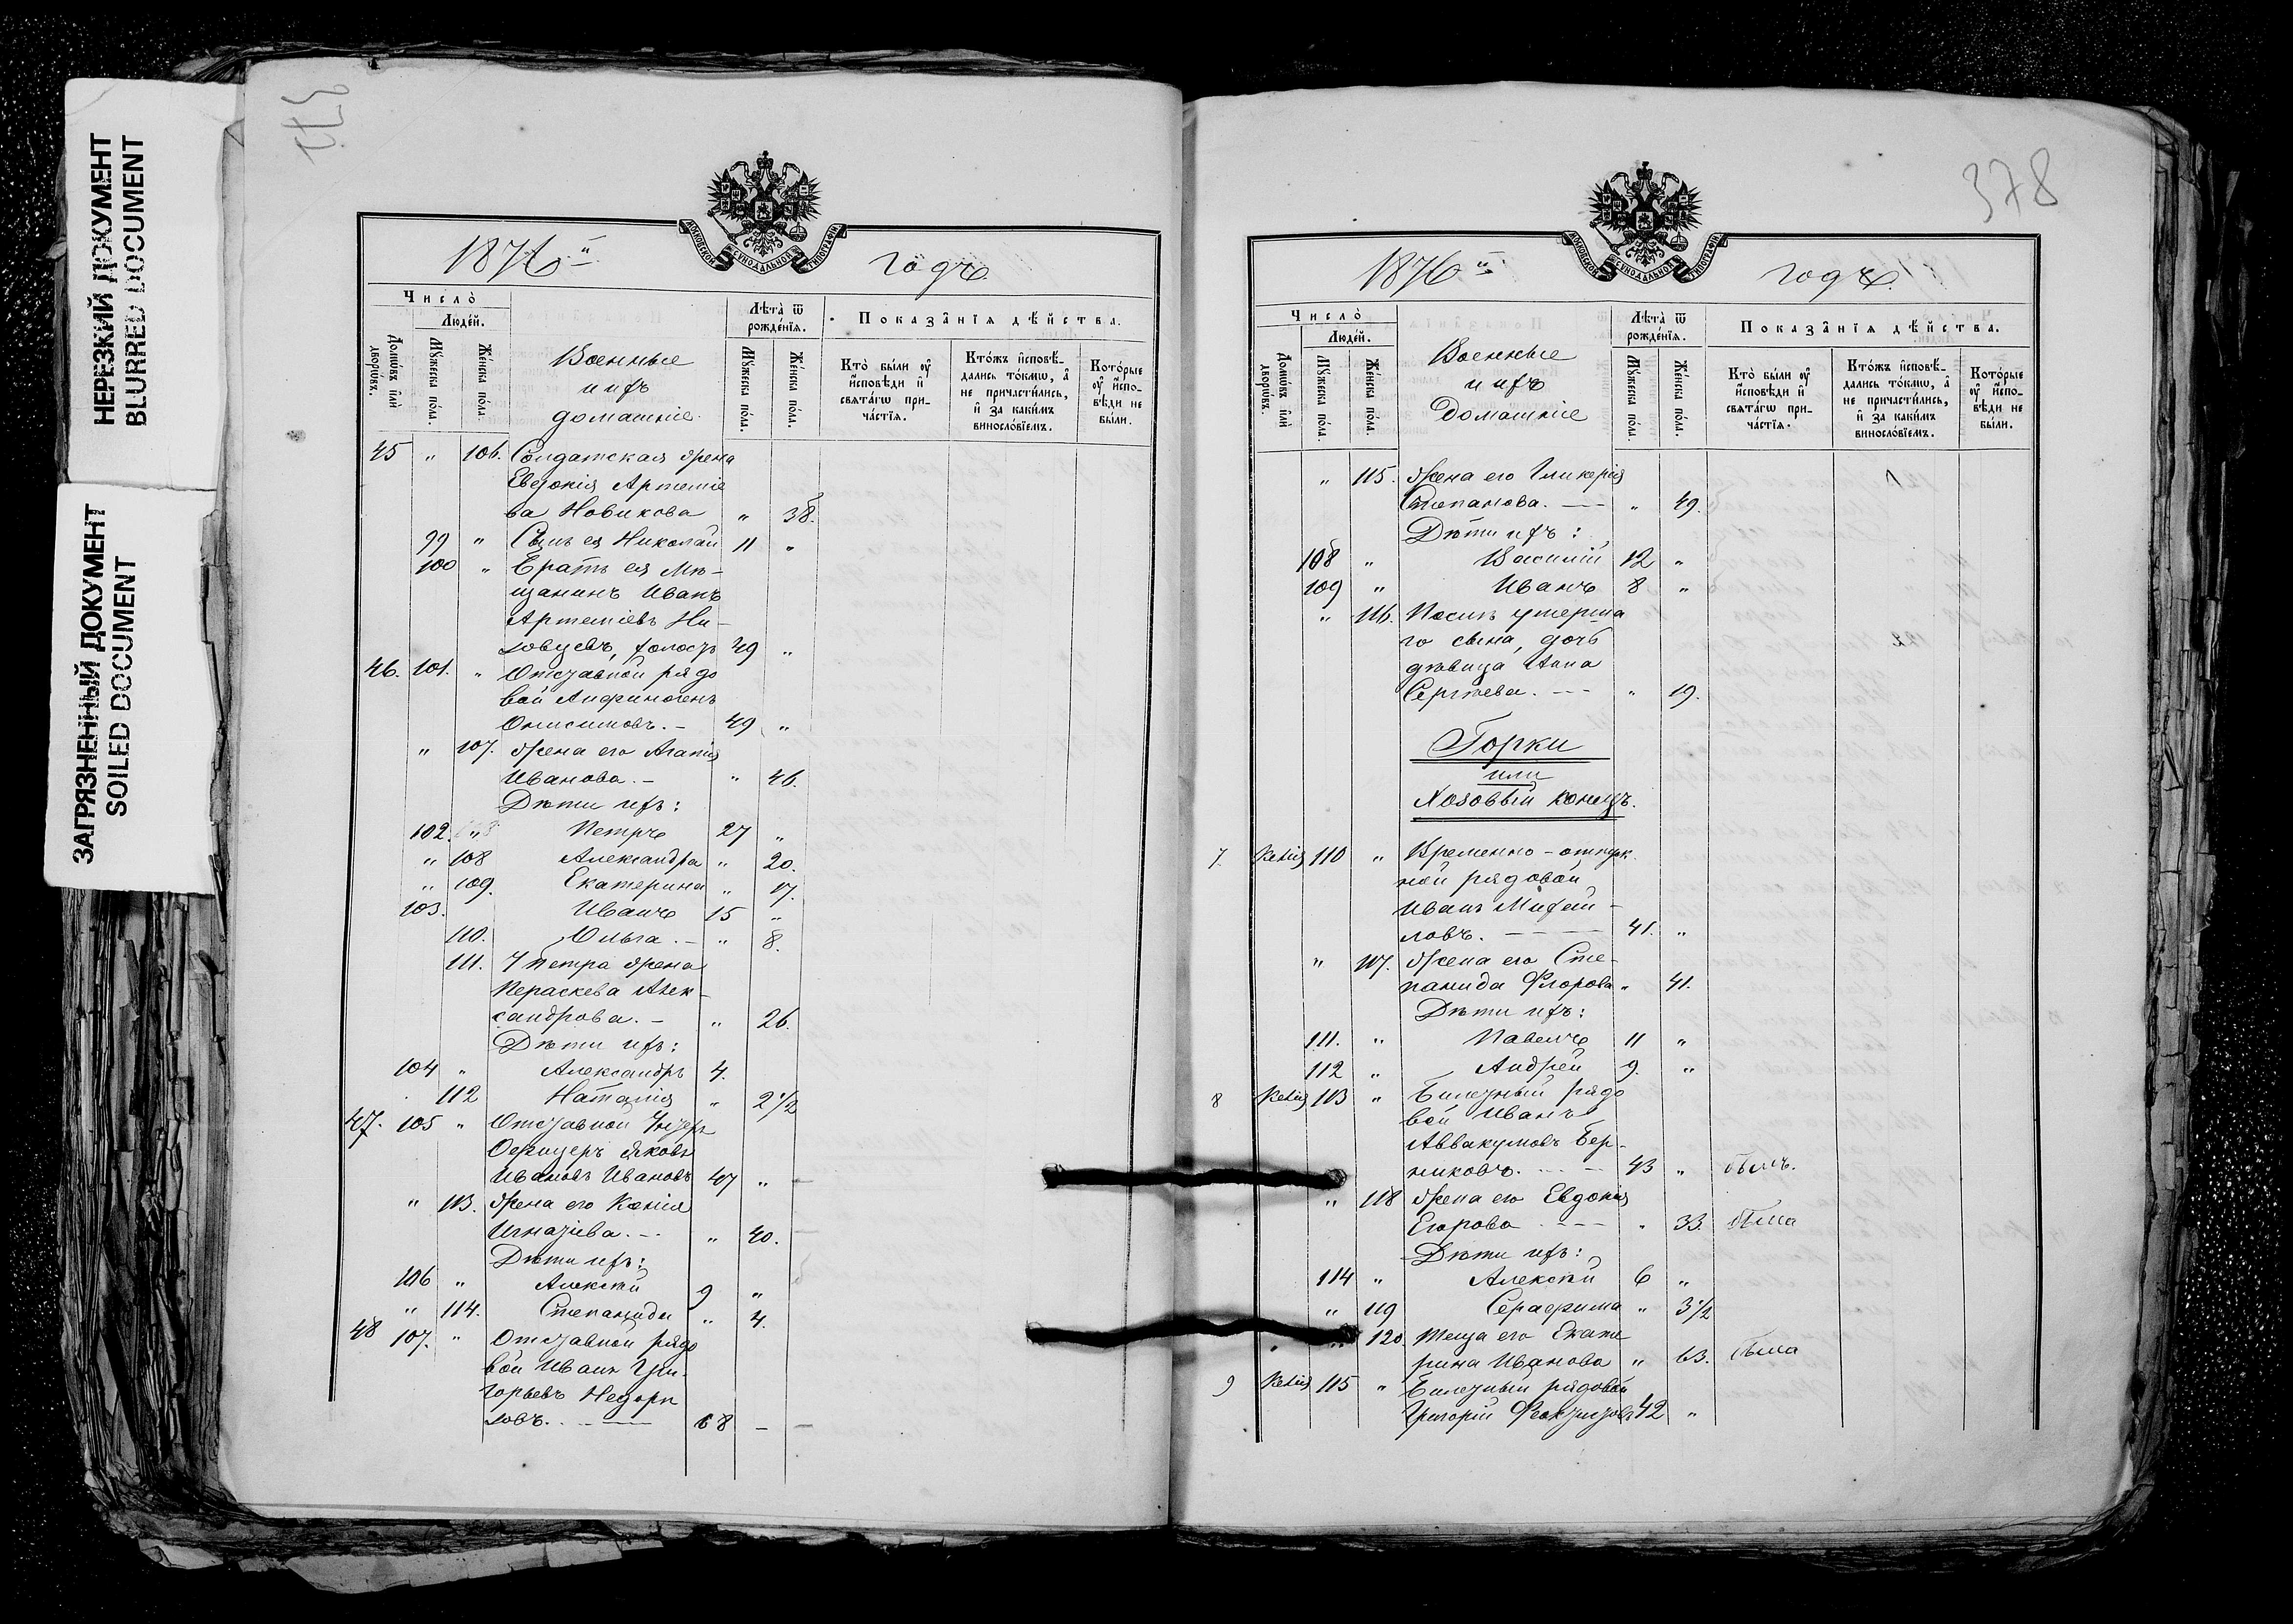 НЕРЕЗКИЙ ДОКУМЕНТ
BLURRED DOCUMENT
ЗАГРЯЗНЕННЫЙ ДОКУМЕНТ
SOILED DOCUMENT
МОСКОВСКОЙ СѴНОДАЛЬНОЙ ТИПОГРАФІИ
1876й годъ.
Число̀
Люде́й.
Домѡ́въ и҆лѝ дворѡ́въ.
Мꙋ́жеска по́ла.
Же́нска по́ла.
Военные
и ихъ
домашніе.
Лѣ́та ѿ рожде́нїѧ.
Мꙋ́жеска по́ла.
Же́нска по́ла.
Показа̑нїѧ дѣ́йства.
Кто̀ бы́ли ᲂу҆ и҆́сповѣди и҆ свѧта́гѡ прича́стїѧ.
Кто́жъ и҆сповѣ́дались то́кмѡ, а҆ не причасти́лись, и҆ за каки́мъ винослові́емъ.
Кото́рые ᲂу҆ и҆́сповѣди не бы́ли.
45 " 106. Солдатская жена
Евдокія Артеміе
ва Новикова " 38.
99 " Сынъ ея Николай 11 "
100 " Братъ ея Мѣ-
щанинъ Иванъ
Артеміевъ Ни-
, холостъ 29 "
46. 101. " Отставной рядо
вой
Онисимовъ. - 49 "
" 107. Жена его Агапія
Иванова. - " 46.
Дѣти ихъ:
102. " Петръ 27 "
" 108 Александра " 20.
" 109. Екатерина " 17.
103. Иванъ 15 "
110. Ольга. - " 8.
111. У Петра жена
Пераскева Алек-
сандрова. - " 26.
Дѣти ихъ:
104 " Александръ 4.
112 Наталія " 2 1/2
47. 105 " Отставной Унтеръ
Офицеръ Яковъ
Ивановъ Ивановъ 47 " -
" 113. Жена его Ксенія
Игнатіева. - " 40.
Дѣти ихъ:
106 " Алексѣй 9 "
" 114. Степанида " 4.
48 107. " Отставной рядо
вой Иванъ Гри-
горьевъ
68 - -
378
МОСКОВСКОЙ СѴНОДАЛЬНОЙ ТИПОГРАФІИ
1876й годъ.
Число̀
Люде́й.
Домѡ́въ и҆лѝ дворѡ́въ.
Мꙋ́жеска по́ла.
Же́нска по́ла.
Военные
и ихъ
домашніе
Лѣ́та ѿ рожде́нїѧ.
Мꙋ́жеска по́ла.
Же́нска по́ла.
Показа̑нїѧ дѣ́йства.
Кто̀ бы́ли ᲂу҆ и҆́сповѣди и҆ свѧта́гѡ прича́стїѧ.
Кто́жъ и҆сповѣ́дались то́кмѡ, а҆ не причасти́лись, и҆ за каки́мъ винослові́емъ.
Кото́рые ᲂу҆ и҆́сповѣди не бы́ли.
" 115. Жена его Гликерія
Степанова. - " 49.
Дѣти ихъ:
108 " Василій 12 "
109 " Иванъ 8 "
" 116. Послѣ умерша
го сына, дочь
дѣвица Анна
Сергѣева. - " 19.
Горки
или
конецъ.
7 Келія 110 " Временно-отпуск
ной рядовой
Иванъ Михай-
ловъ. - 41. "
" 117. Жена его Сте-
панида Флорова " 41.
Дѣти ихъ:
111. " Павелъ 11 "
112 " Андрей 9. "
8 Келія 113 " Билетный рядо
вой Иванъ
Аввакумовъ Бер-
никовъ. - 43 " былъ.
" 118 Жена его Евдокія
Егорова - " 33. была
Дѣти ихъ:
114 " Алексѣй 6 "
" 119 Серафима " 3 1/2
" 120. Теща его Екате
рина Иванова " 63. была
9 Келія 115 " Билетный рядовой
Григорій Феоктистовъ 42 "